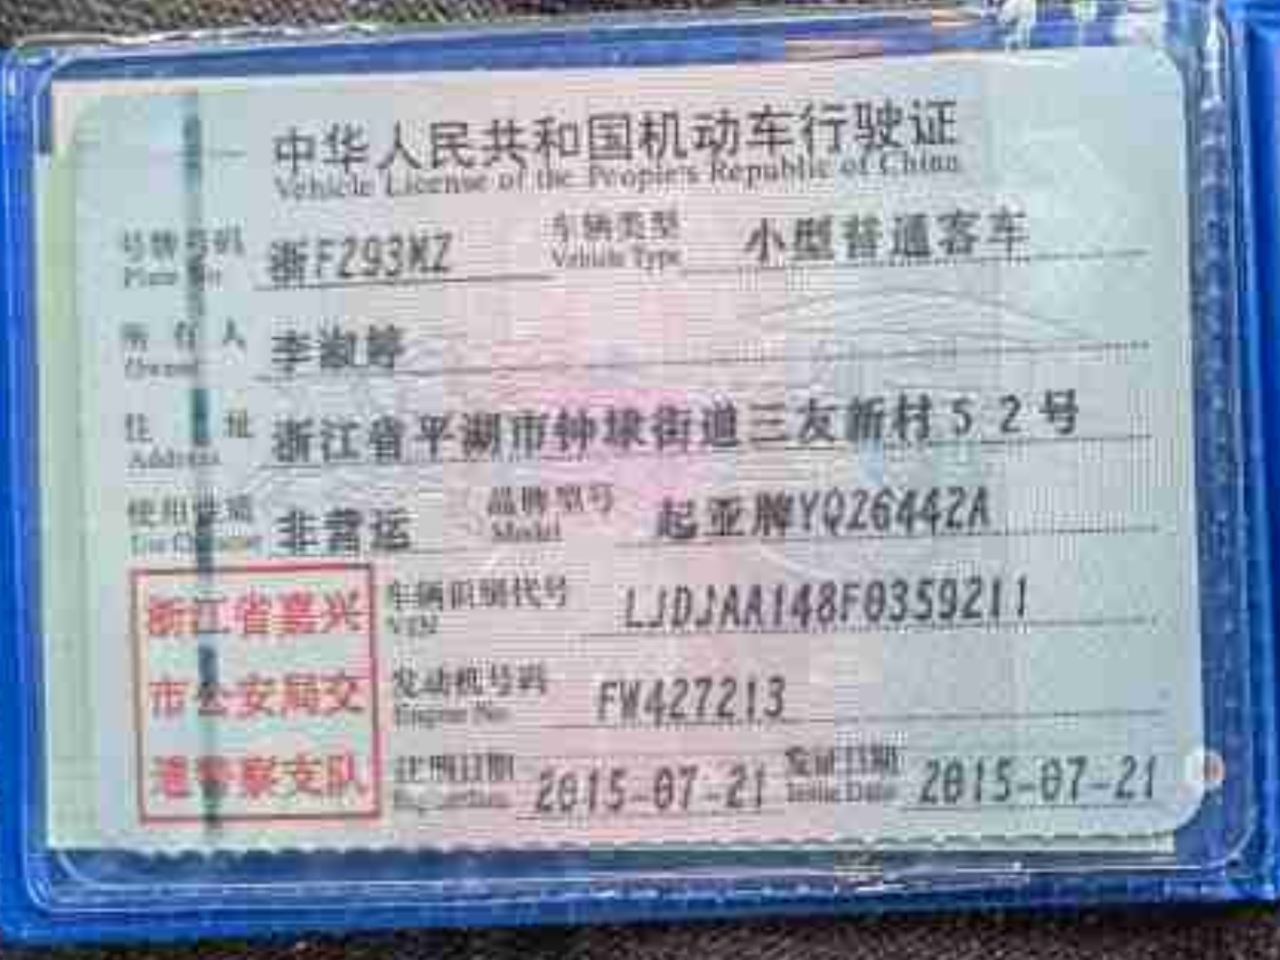 中华人民共和国机动车行驶证
Vehicle License of the People's Republic of China
号牌号码 浙F293MZ 车辆类型 小型普通客车
Plate No Vehicle Type
所有人 李淑婷
Owner
住址 浙江省平湖市钟埭街道三友新村52号
Address
使用性质 非营运 品牌型号 起亚牌YQZ6442A
Use Character Model
浙江省嘉兴
市公安局交
通警察支队
车辆识别代号 LJDJAA148F0359211
VIN
发动机号码 FW427213
Engine No.
注册日期 2015-07-21 发证日期 2015-07-21
Register Date Issue Date